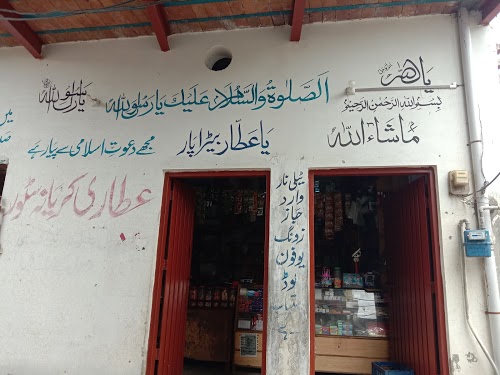 یا اللہ
بِسْمِ اللہِ الرَّحْمٰنِ الرَّحِیْم
ماشاءاللہ
اَلصَّلوٰۃُ وَالسَّلَامُ عَلَیْکَ یَا رَسُوْلَ اللہ
یارسول اللہ
یا عطار بیڑا پار
مجھے دعوتِ اسلامی سے پیار ہے
میں
عطاری کریانہ سٹور
ٹیلی نار
وارد
جاز
زونگ
یوفون
لوڈ